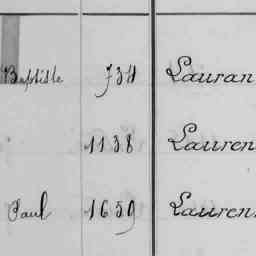 Baptiste 734 Lauran
1138 Lauren
Paul 1659 Lauren